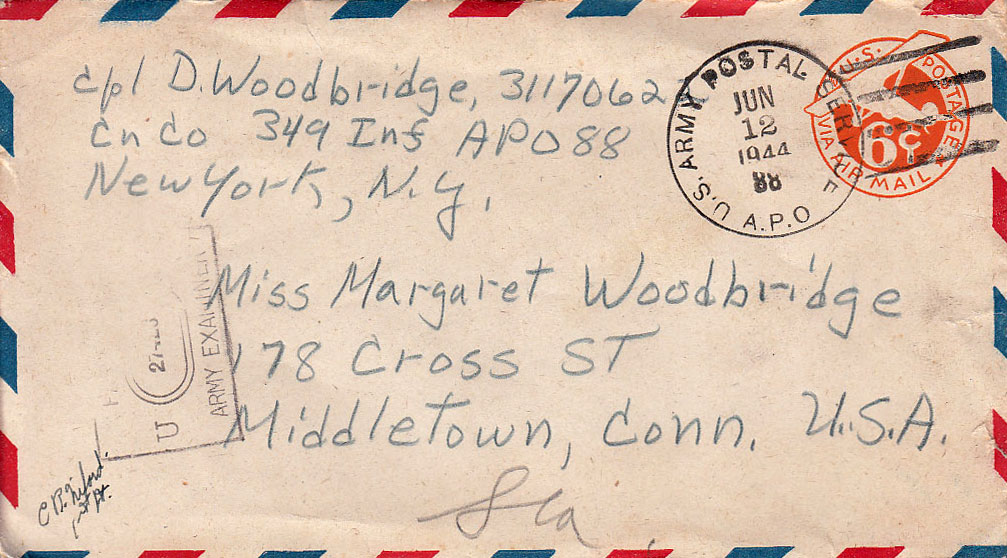 cpl D. Woodbridge, 3117062
Cn Co 349 Inf APO 88
New York, N.Y.
U.S. ARMY POSTAL SERVICE
JUN
12
1944
88
A.P.O
U.S. POSTAGE
6¢
VIA AIR MAIL
Miss Margaret Woodbridge
178 Cross ST
Middletown, Conn. U.S.A.
U
ARMY EXAMINER